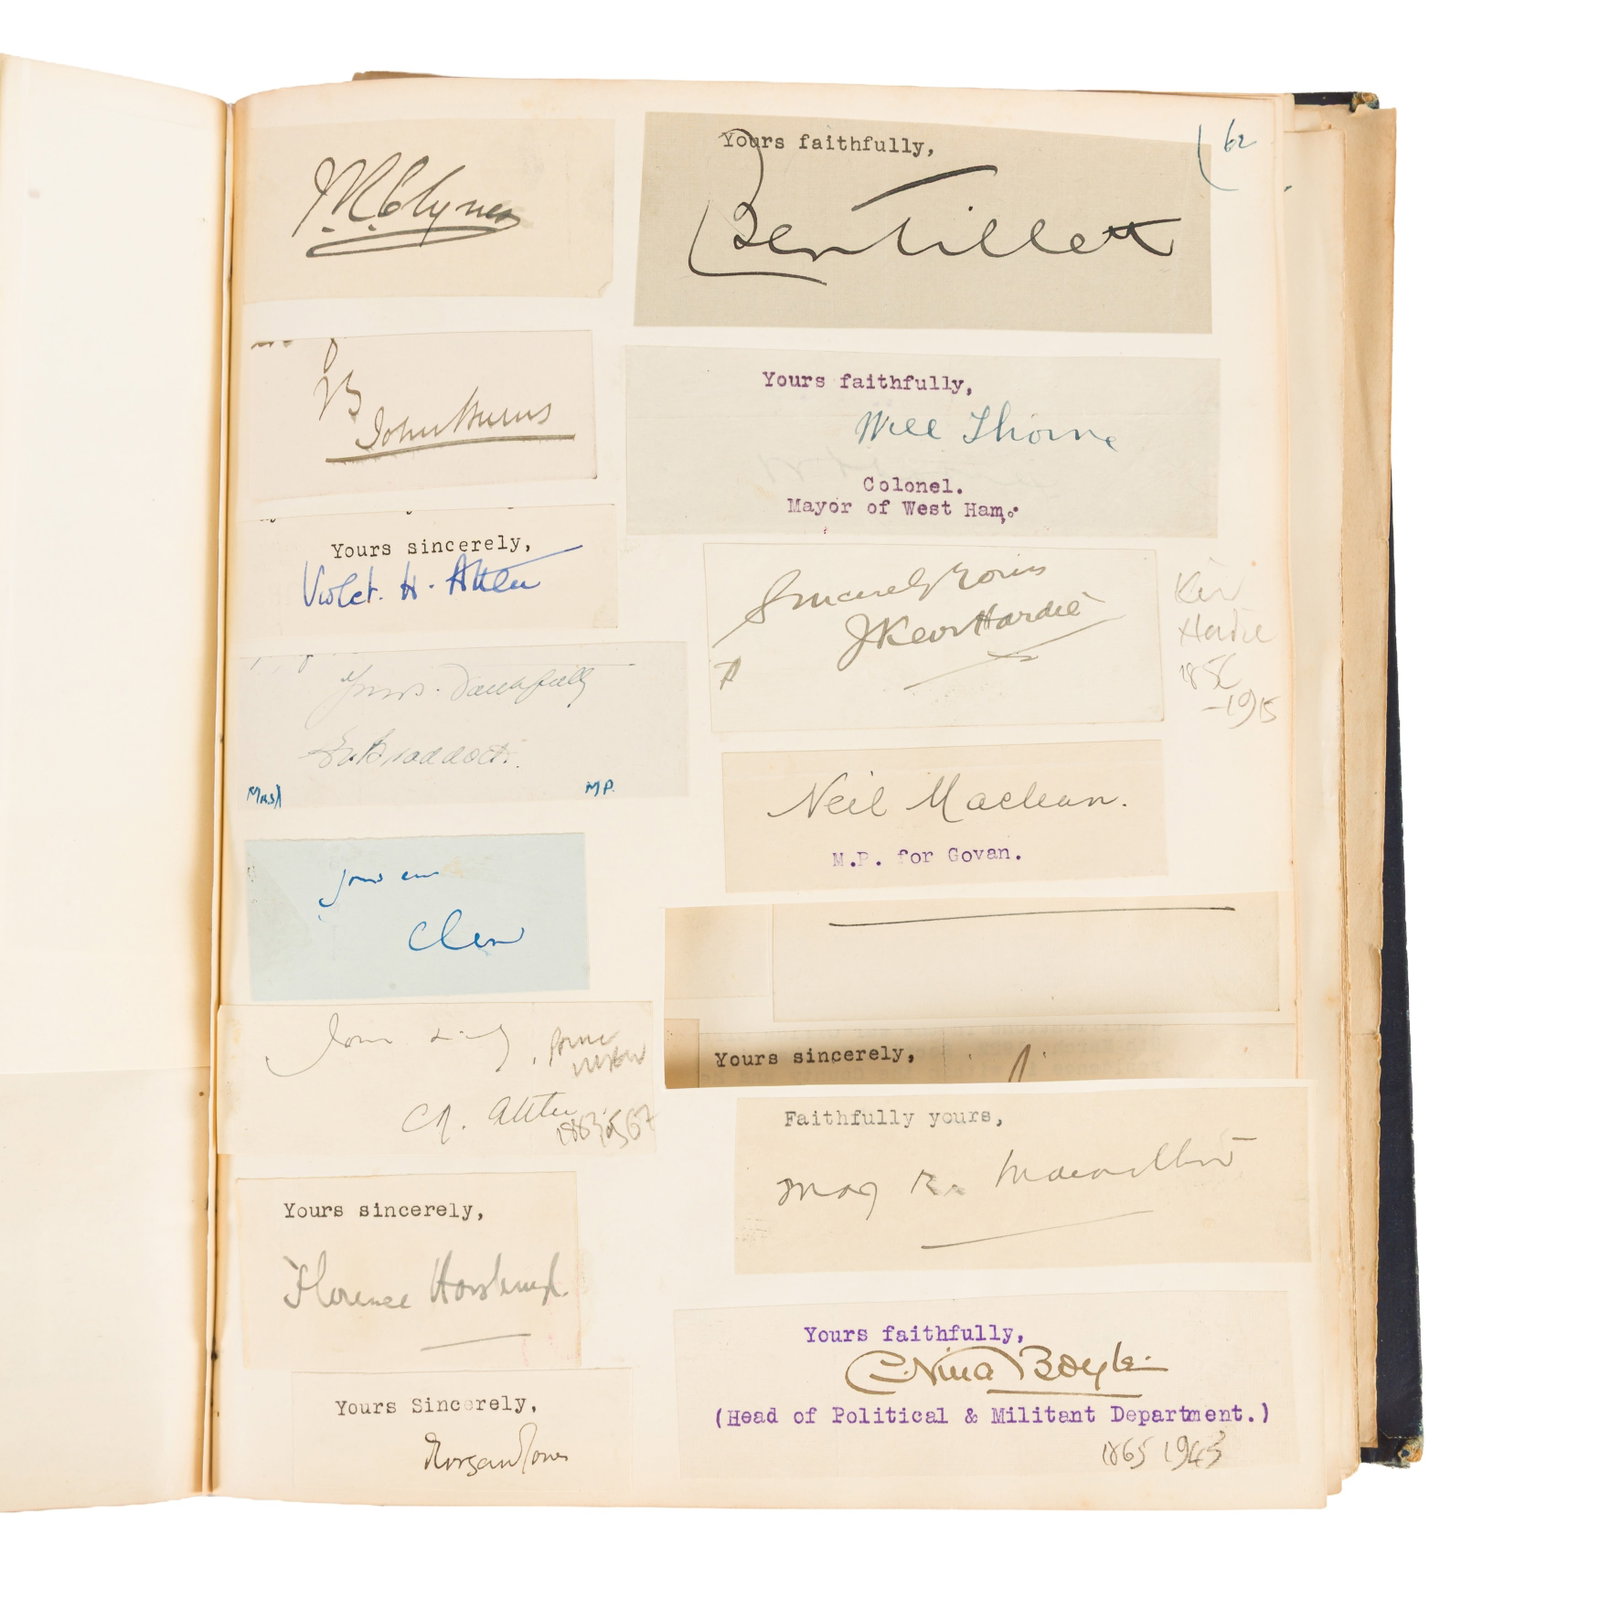 J.R. Clynes
JB
John Burns
Yours sincerely,
Violet. H. Attlee
Yours faithfully
E. M. Braddock.
Mrs) M.P.
Clem
Prime
Minister
C.R. Attlee
1883 1967
Yours sincerely,
Florence Horsbrugh.
Yours Sincerely,
Morgan Jones
62
Yours faithfully,
Ben Tillett
Yours faithfully,
Will Thorne
Colonel.
Mayor of West Ham.
Sincerely Yours
J Keir Hardie
Keir
Hardie
1856
-1915
Neil Maclean.
M.P. for Govan.
Yours sincerely,
Faithfully yours,
Yours faithfully,
C. Nina Boyle.
(Head of Political & Militant Department.)
1865 1943